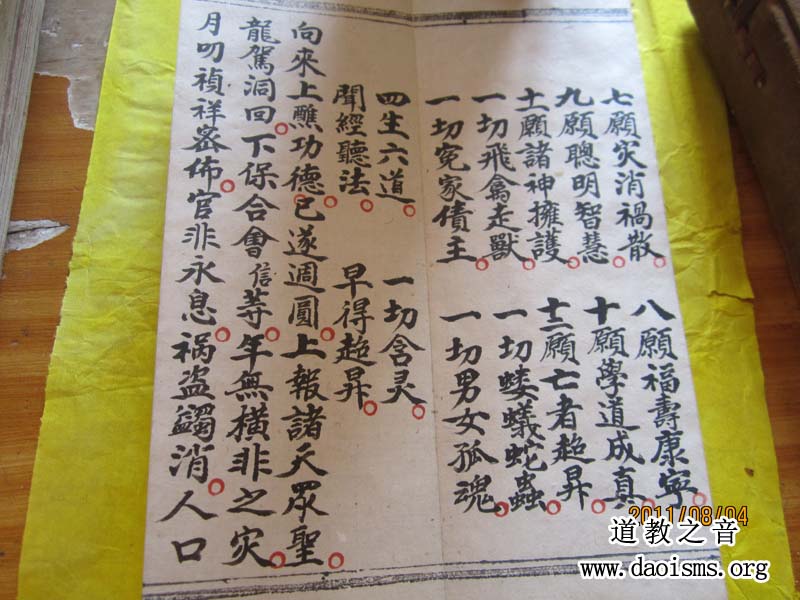 七願灾消禍散。 八願福壽康寧。
九願聰明智慧。 十願學道成真。
十一願諸神擁護。 十二願亡者超昇。
一切飛禽走獸。 一切蝼蟻蛇蟲。
一切冤家債主。 一切男女孤魂。
四生六道。 一切含灵。
聞經聽法。 早得超昇。
向來上醮功德。已遂週圓。上報諸天眾聖。
龍駕洞回。下保合會信等。年無橫非之灾。
月叨禎祥密佈。官非永息。禍盜蠲消。人口
2011/08/04
道教之音
www.daoisms.org